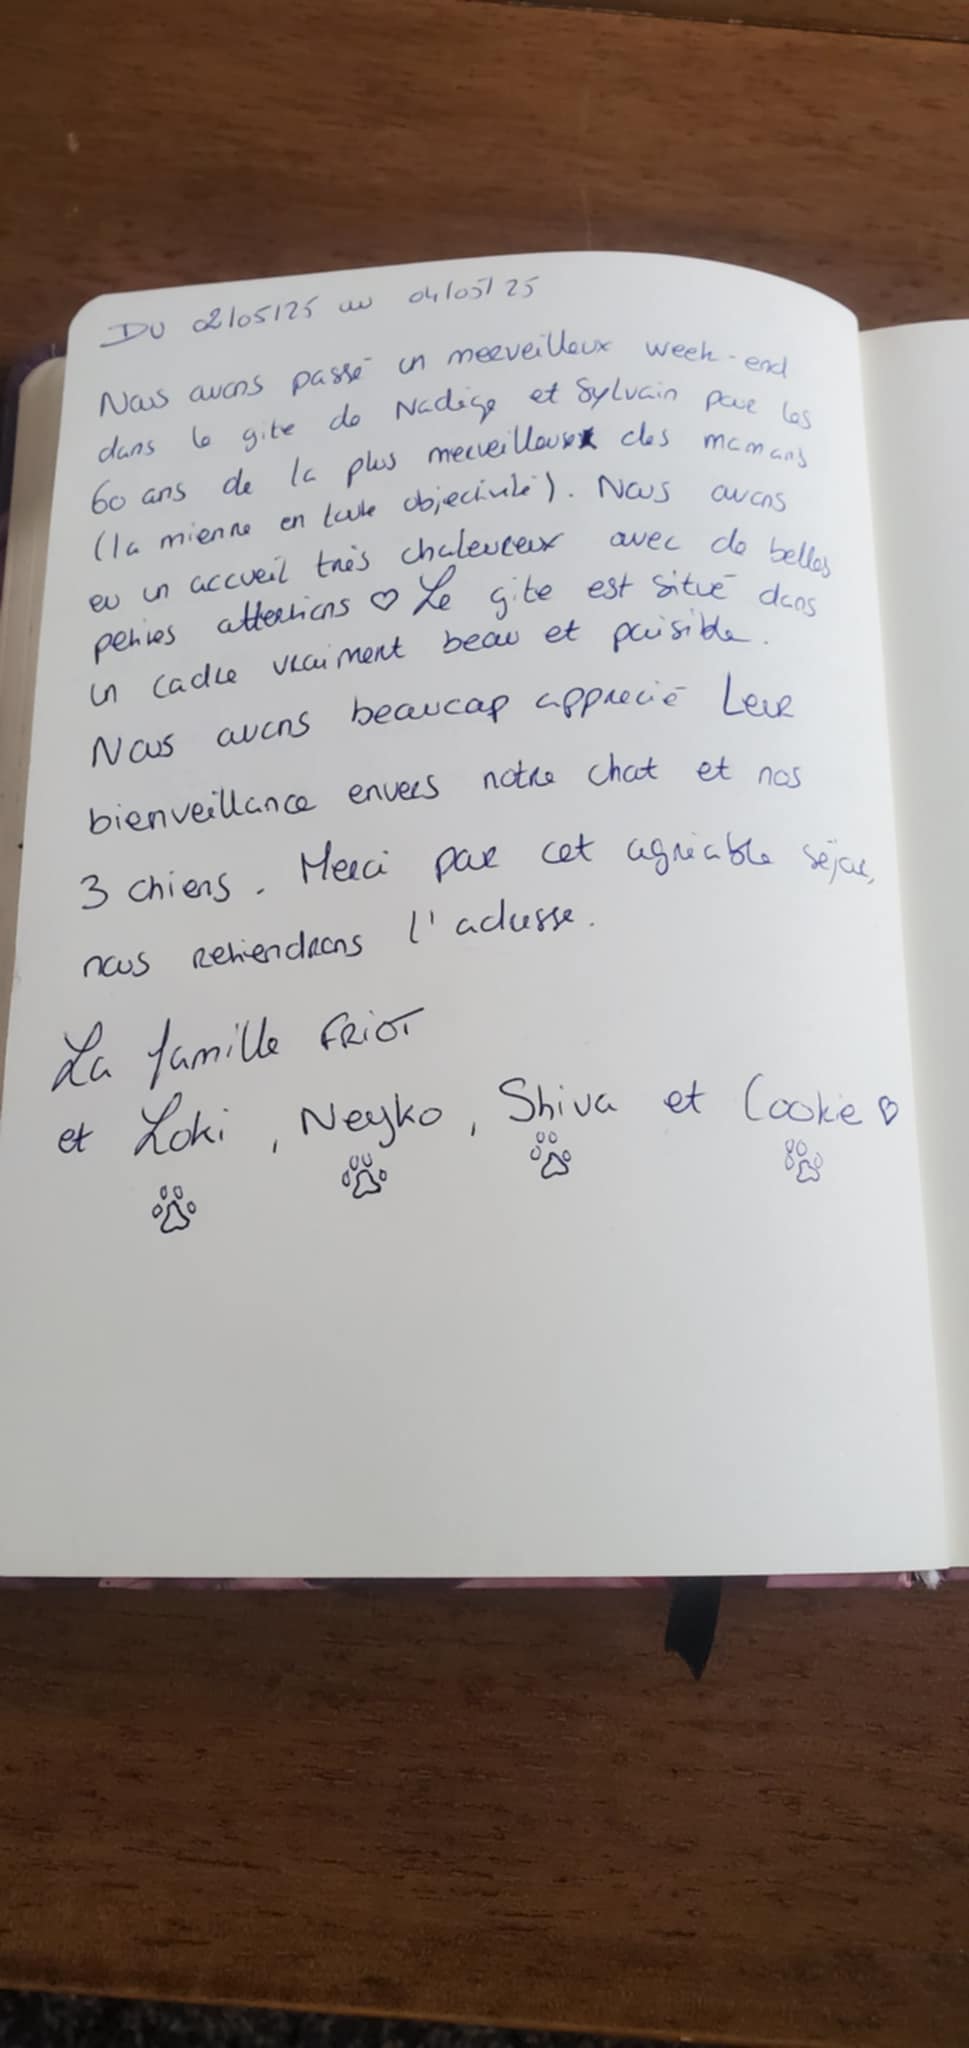 DU 02/05/25 au 04/05/25
Nous avons passé un merveilleux week-end
dans le gite de Nadège et Sylvain pour les
60 ans de la plus merveilleuse des mamans
(la mienne en toute objectivité). Nous avons
eu un accueil très chaleureux avec de belles
petites attentions ♡ Le gite est situé dans
un cadre vraiment beau et paisible.
Nous avons beaucoup apprecié Leur
bienveillance envers notre chat et nos
3 chiens. Merci pour cet agréable séjour,
nous retiendrons l'adresse.
La famille FRIOT
et Loki, Neyko, Shiva et Cookie ♡